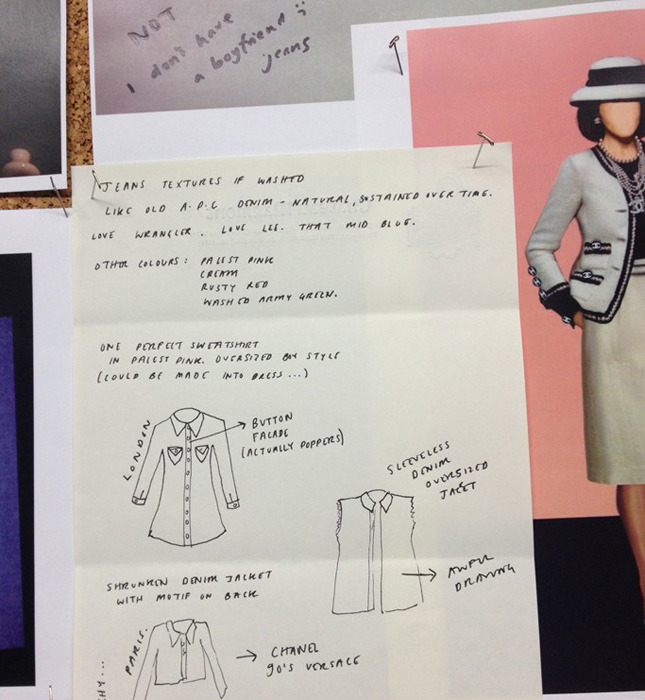 NOT
I don't have
a boyfriend
jeans
JEANS TEXTURES IF WASHED
LIKE OLD A.P.C DENIM - NATURAL, SUSTAINED OVER TIME.
LOVE WRANGLER. LOVE LEE. THAT MID BLUE.
OTHER COLOURS: PALEST PINK
CREAM
RUSTY RED
WASHED ARMY GREEN.
ONE PERFECT SWEATSHIRT
IN PALEST PINK. OVERSIZED BOX STYLE
(COULD BE MADE INTO DRESS...)
LONDON
BUTTON
FACADE
(ACTUALLY POPPERS)
SLEEVELESS
DENIM
OVERSIZED
JACKET
AWFUL
DRAWING
SHRUNKEN DENIM JACKET
WITH MOTIF ON BACK
PARIS.
CHANEL
90'S VERSACE